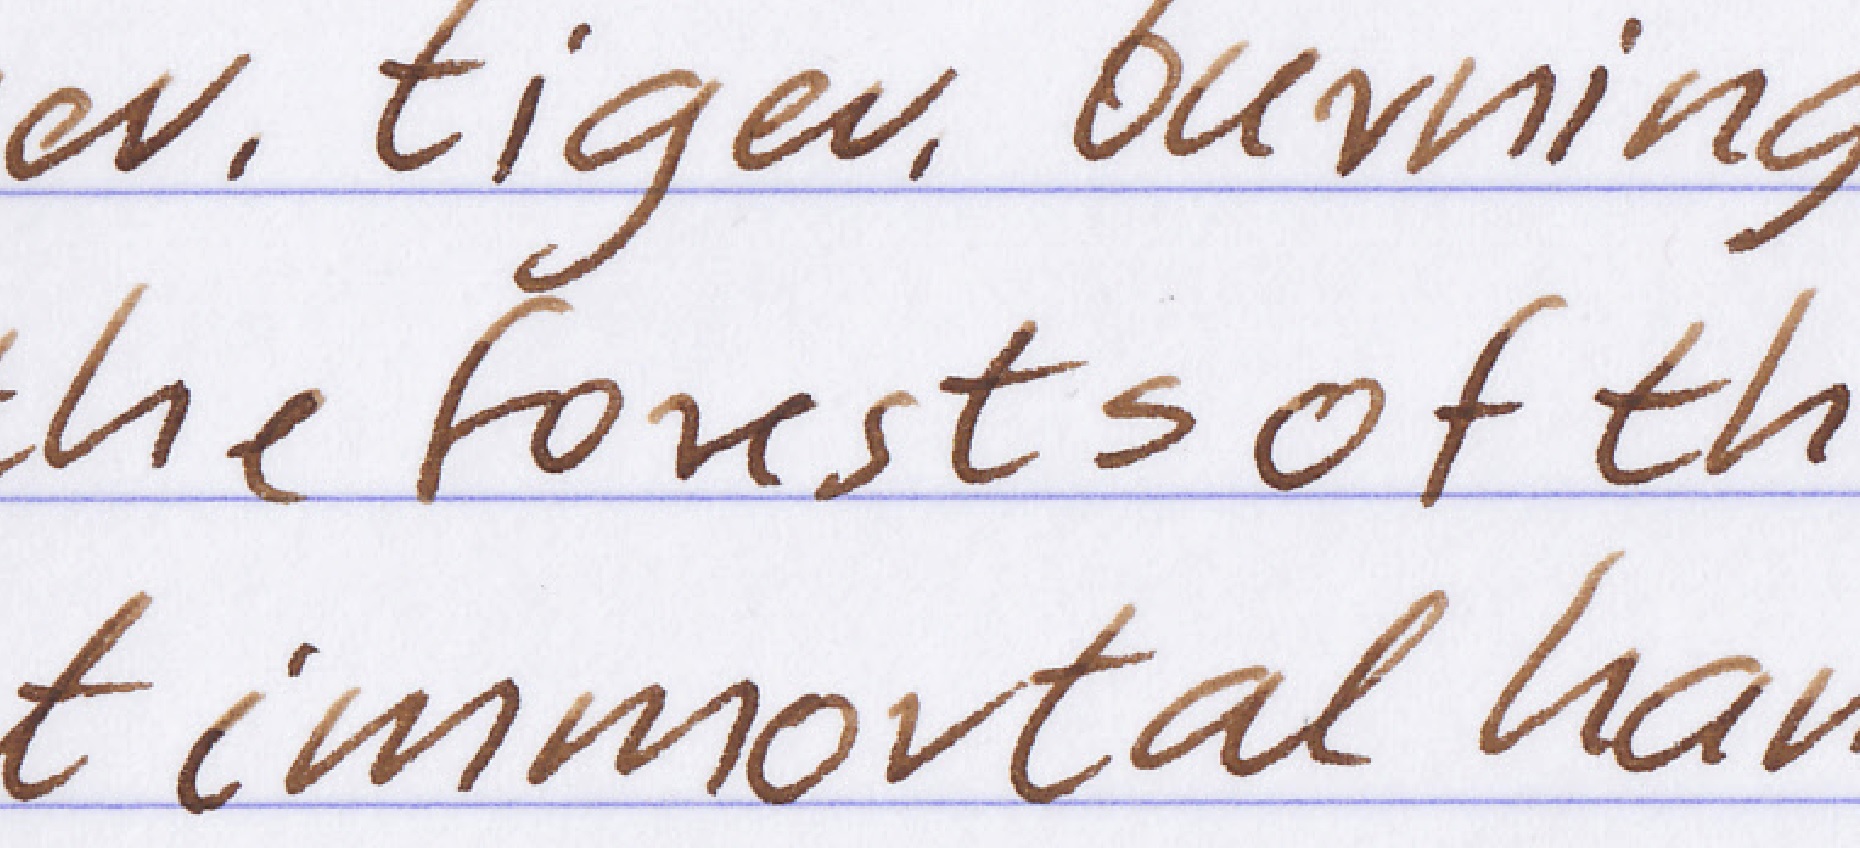 er, tiger, burning
the forests of th
t immortal han